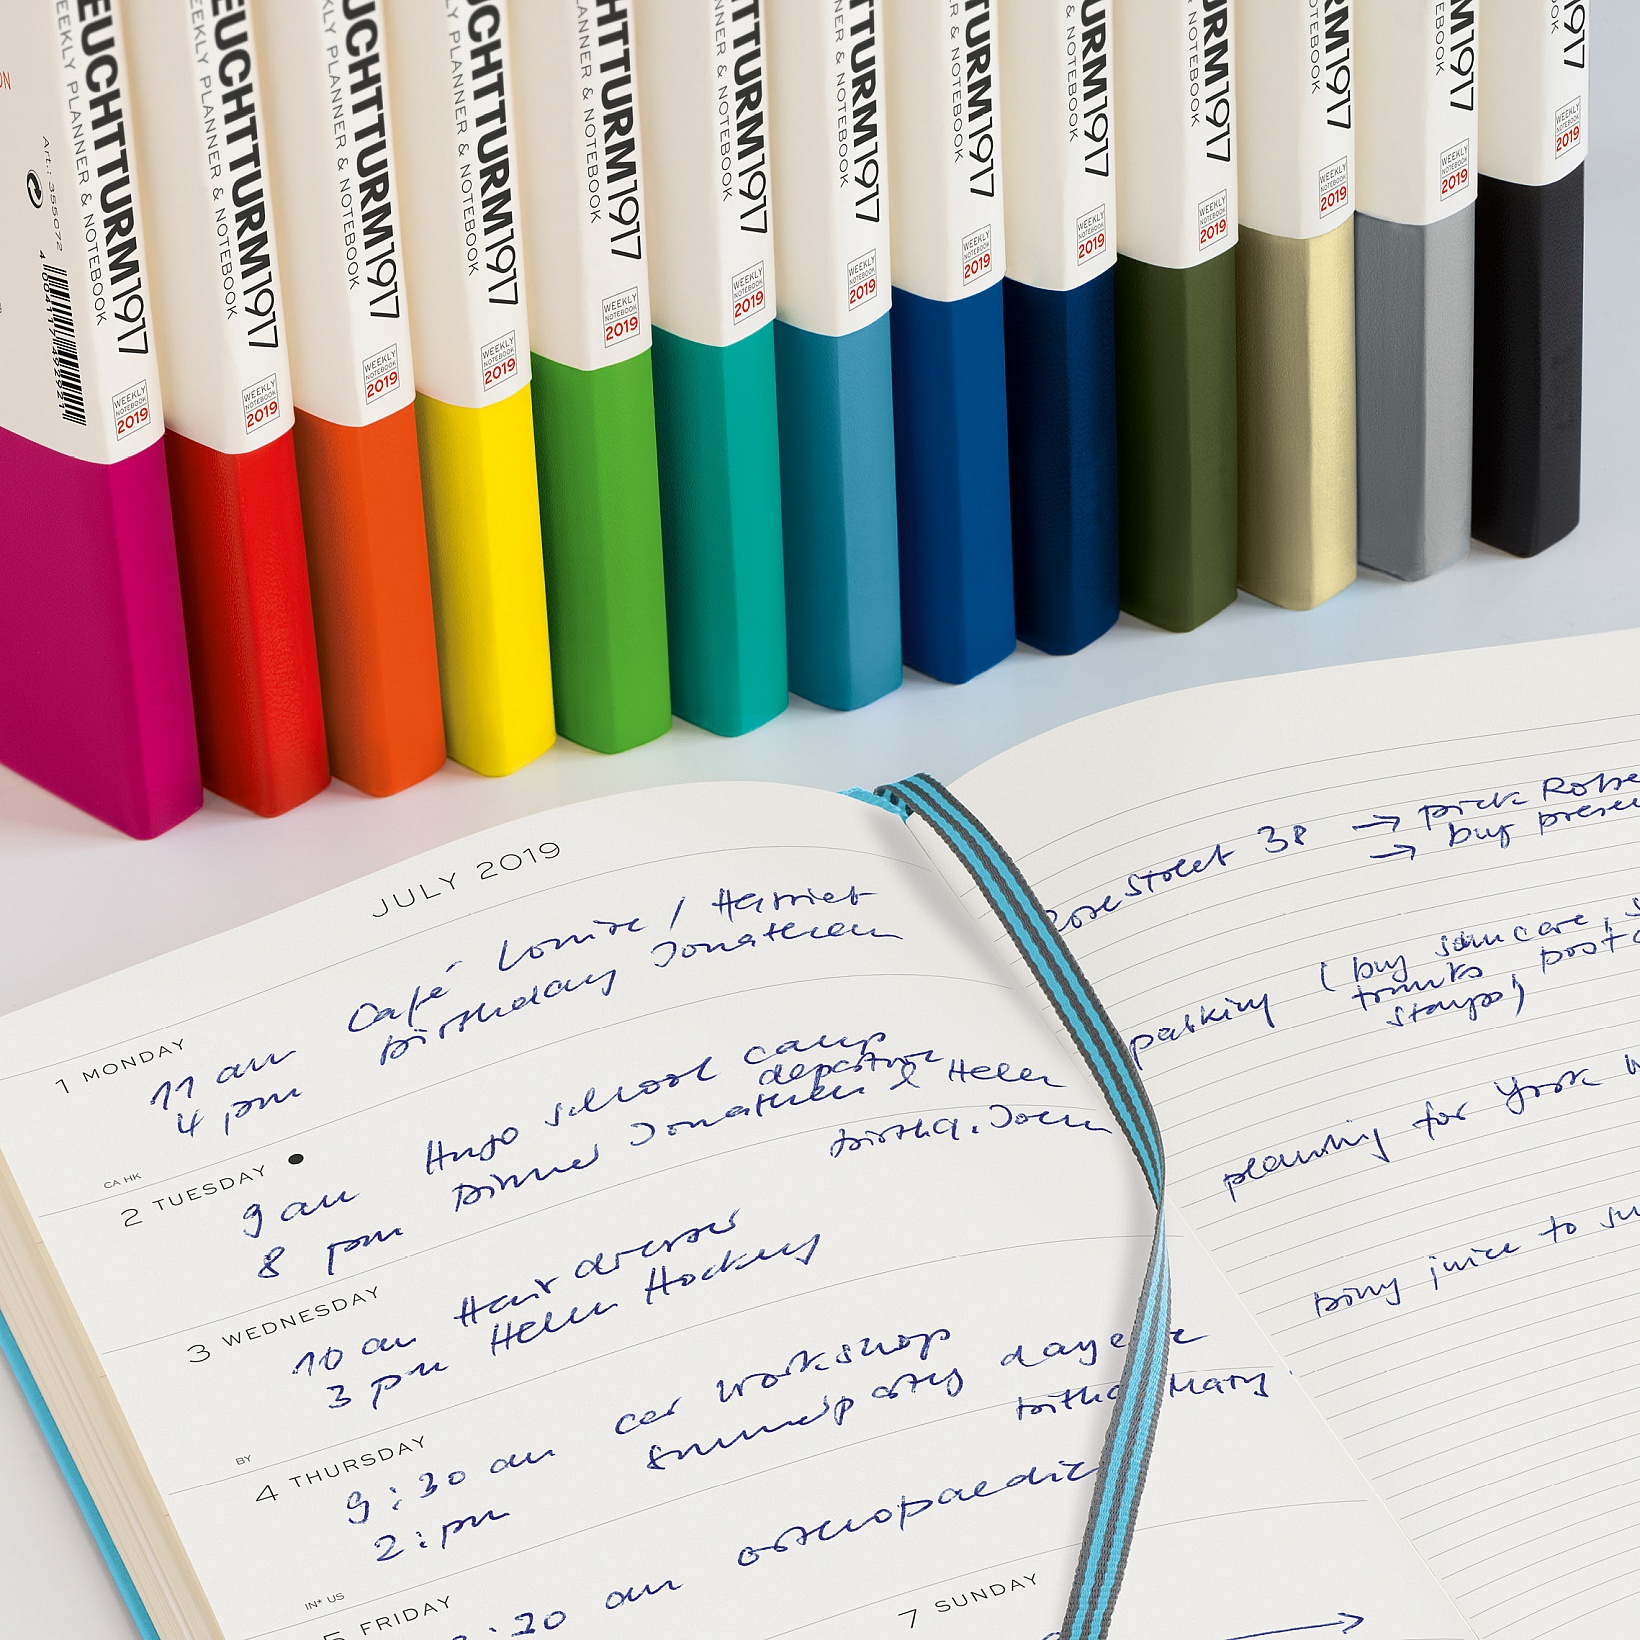 EUCHTTURM1917
EEKLY PLANNER & NOTEBOOK
Art.: 355072
WEEKLY
NOTEBOOK
2019
EUCHTTURM1917
EEKLY PLANNER & NOTEBOOK
WEEKLY
NOTEBOOK
2019
UCHTTURM1917
KLY PLANNER & NOTEBOOK
WEEKLY
NOTEBOOK
2019
UCHTTURM1917
LY PLANNER & NOTEBOOK
WEEKLY
NOTEBOOK
2019
HTTURM1917
ANNER & NOTEBOOK
WEEKLY
NOTEBOOK
2019
TTURM1917
NNER & NOTEBOOK
WEEKLY
NOTEBOOK
2019
TTURM1917
NER & NOTEBOOK
WEEKLY
NOTEBOOK
2019
TURM1917
R & NOTEBOOK
WEEKLY
NOTEBOOK
2019
URM1917
& NOTEBOOK
WEEKLY
NOTEBOOK
2019
URM1917
NOTEBOOK
WEEKLY
NOTEBOOK
2019
RM1917
OTEBOOK
WEEKLY
NOTEBOOK
2019
M1917
EBOOK
WEEKLY
NOTEBOOK
2019
1917
OOK
WEEKLY
NOTEBOOK
2019
JULY 2019
1 MONDAY
11 am Café Louise / Harriet
4 pm Birthday Jonathan
CA HK
2 TUESDAY
9 am Hugo school camp
departure
8 pm Dinner Jonathan & Helen
3 WEDNESDAY
10 am Hair dresser
3 pm Helen Hockey
BY
4 THURSDAY
9:30 am car workshop
2: pm
Mary
IN* US
5 FRIDAY
:30 am orthopaedic
7 SUNDAY
Rose Street 38 → pick Robe
→ buy presen
parking (buy suncare, s
trunks, post c
stamps)
planning for York W
bring juice to su